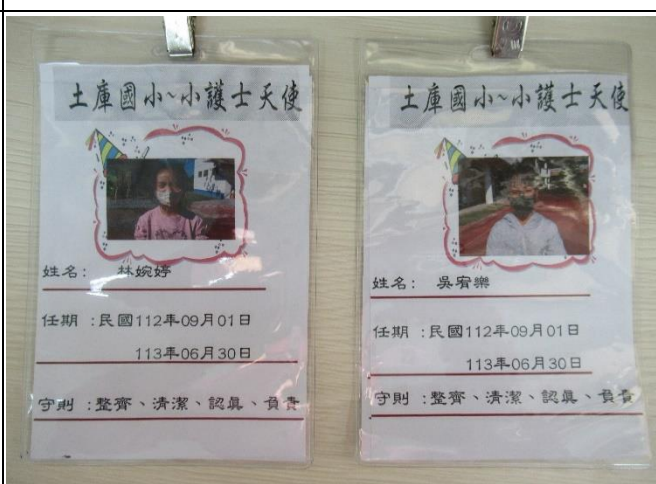 土庫國小~小護士天使
姓名： 林婉婷
任期 ：民國112年09月01日
113年06月30日
守則 ：整齊、清潔、認真、負責
土庫國小~小護士天使
姓名： 吳宥樂
任期 ：民國112年09月01日
113年06月30日
守則 ：整齊、清潔、認真、負責